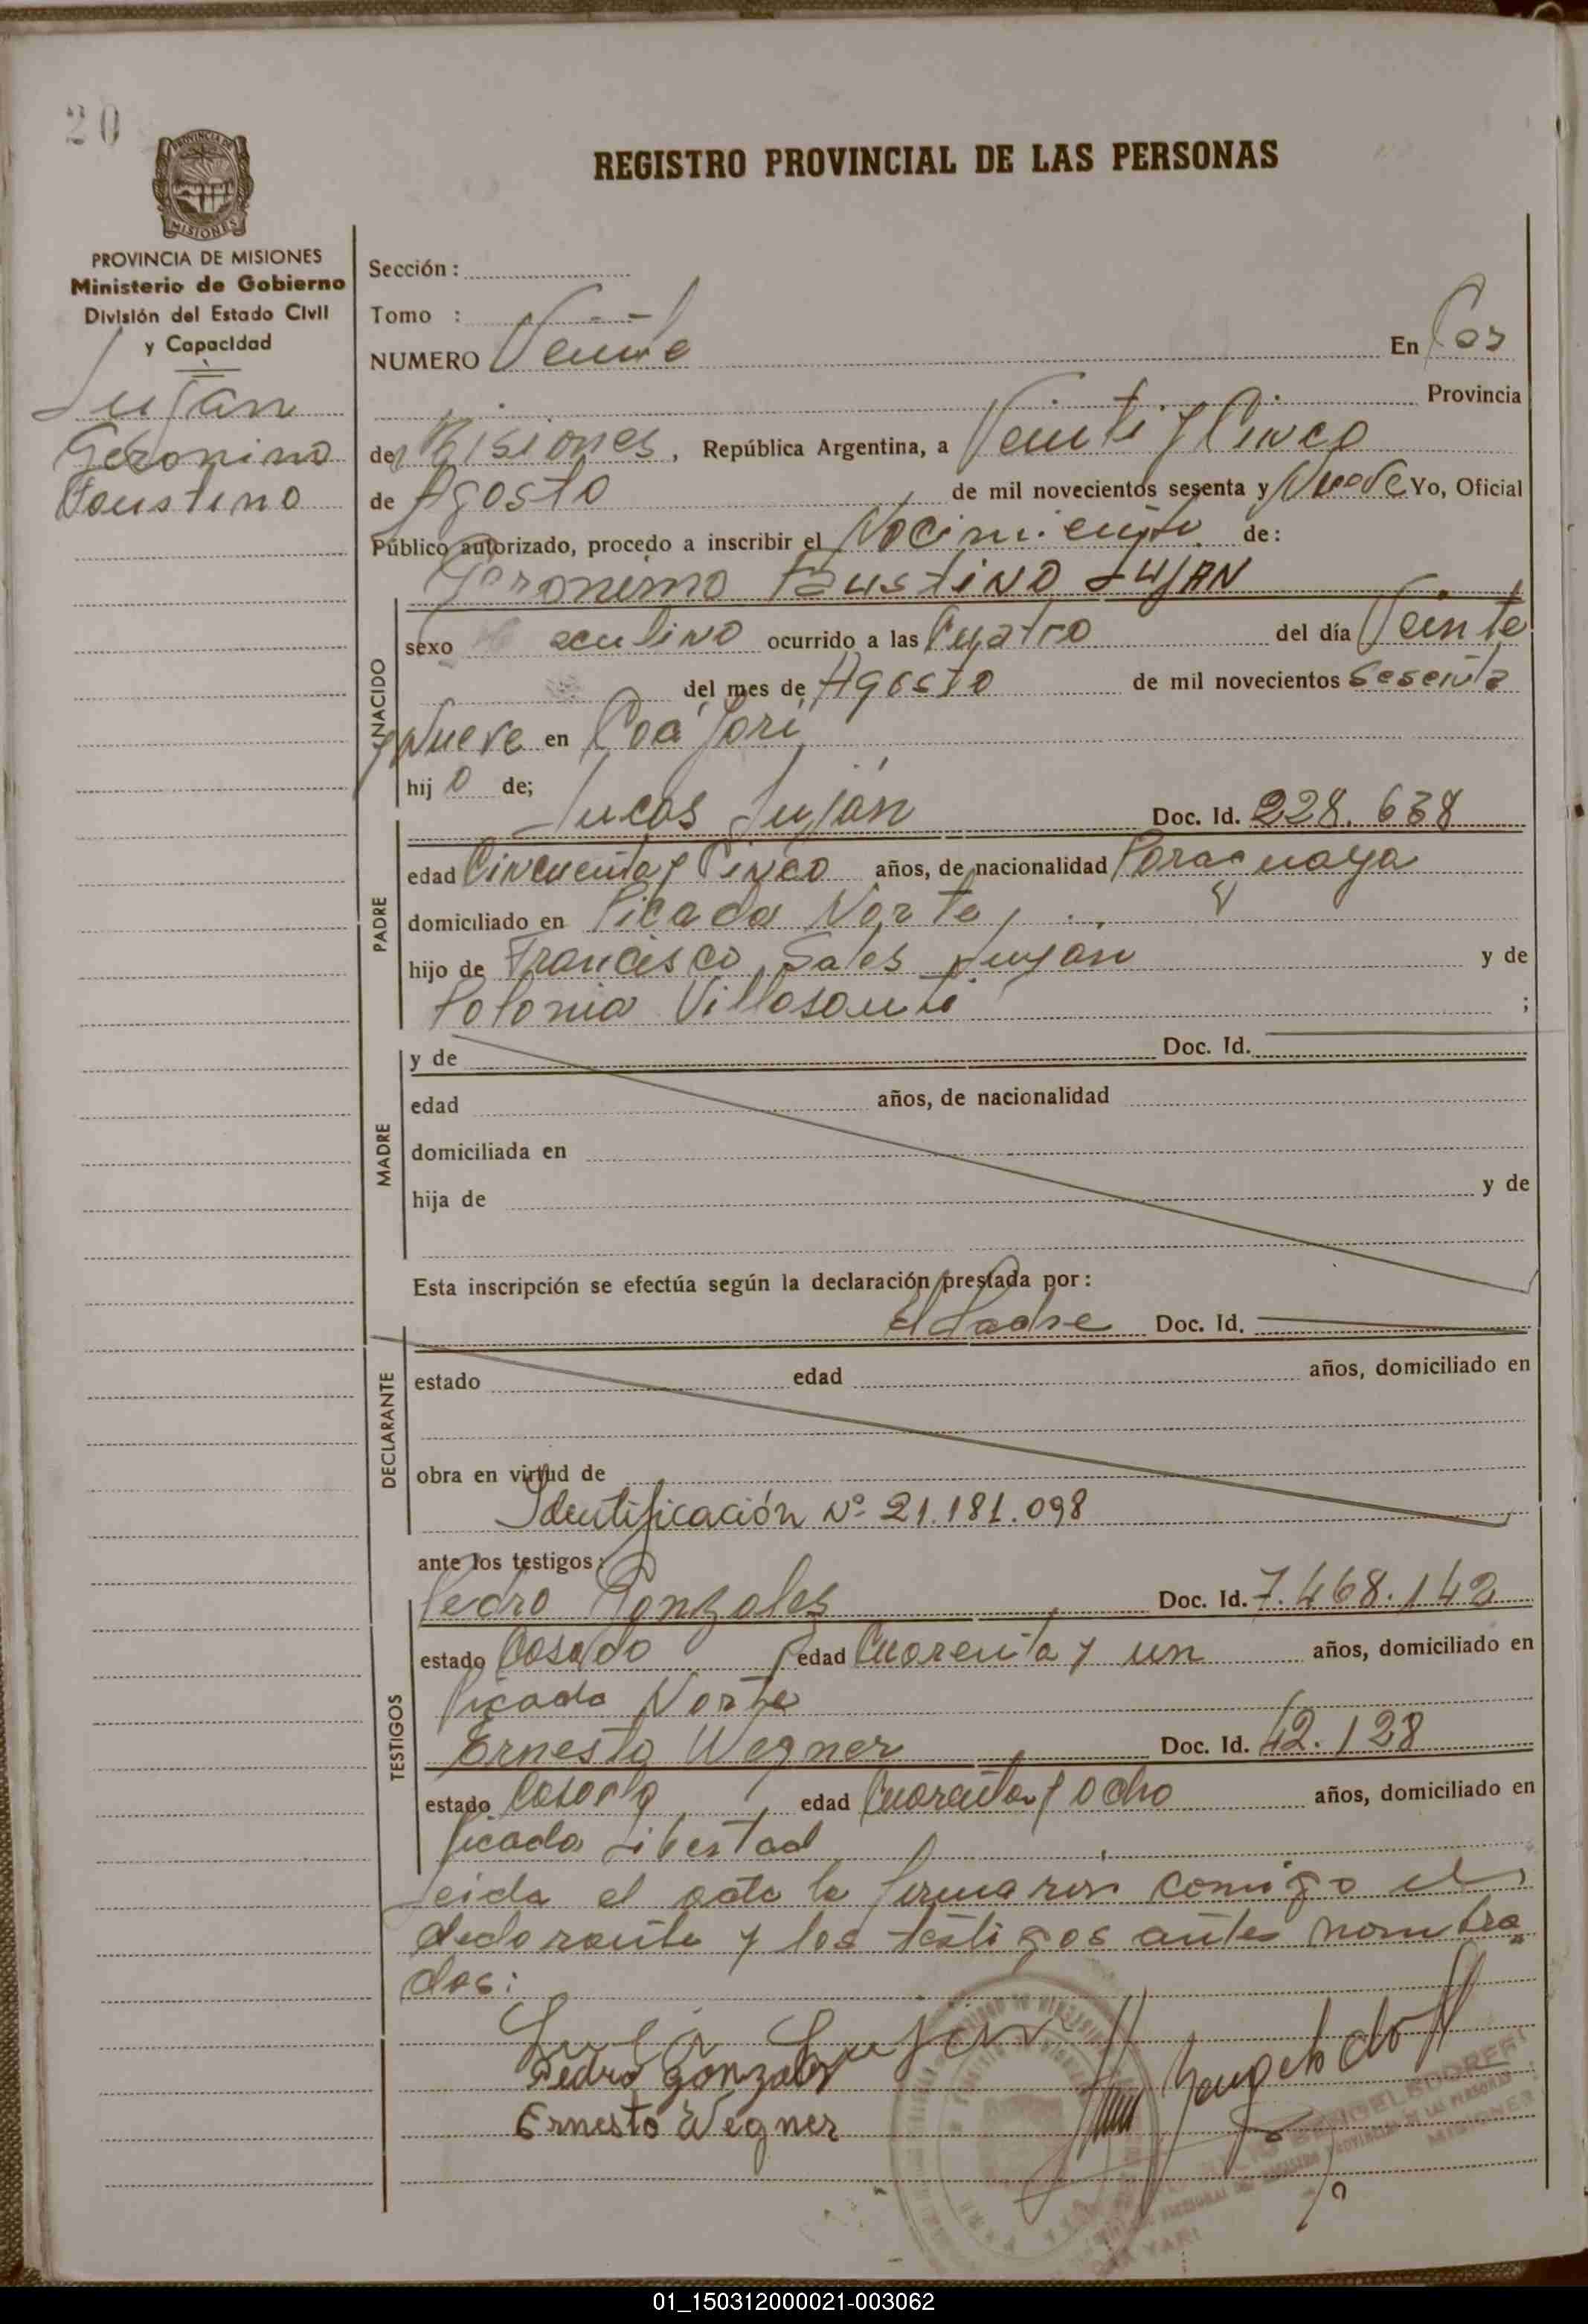 20
PROVINCIA DE MISIONES
Ministerio de Gobierno
División del Estado Civil
y Capacidad
Luján
Geronimo
Faustino
REGISTRO PROVINCIAL DE LAS PERSONAS
Sección :
Tomo :
NUMERO Veinte En
Provincia
de Misiones, República Argentina, a Veinti y Cinco
de Agosto de mil novecientos sesenta y Nueve Yo, Oficial
Público autorizado, procedo a inscribir el Nacimiento de:
Geronimo Faustino LUJAN
NACIDO
sexo Masculino ocurrido a las Cuatro del día Veinte
del mes de Agosto de mil novecientos Sesenta
y Nueve en Caá Yarí
hijo de;
PADRE
Lucas Luján Doc. Id. 228.638
edad Cincuenta y Cinco años, de nacionalidad Paraguaya
domiciliado en Picada Norte
hijo de Francisco Sales Luján y de
Polonia Villasanti ;
MADRE
y de Doc. Id.
edad años, de nacionalidad
domiciliada en
hija de y de
Esta inscripción se efectúa según la declaración prestada por:
El Padre Doc. Id.
DECLARANTE
estado edad años, domiciliado en
obra en virtud de
Identificación Nº 21.181.098
ante los testigos:
TESTIGOS
Pedro Gonzales Doc. Id. 7.468.142
estado Casado edad Cuarenta y un años, domiciliado en
Picada Norte
Ernesto Wegner Doc. Id. 42.128
estado Casado edad Cuarenta y Ocho años, domiciliado en
Picada Libertad
Leida el acta la firmaron comigo el
declarante y los testigos antes nombra
dos:
Luján
Pedro Gonzalez
Ernesto Wegner
01_150312000021-003062